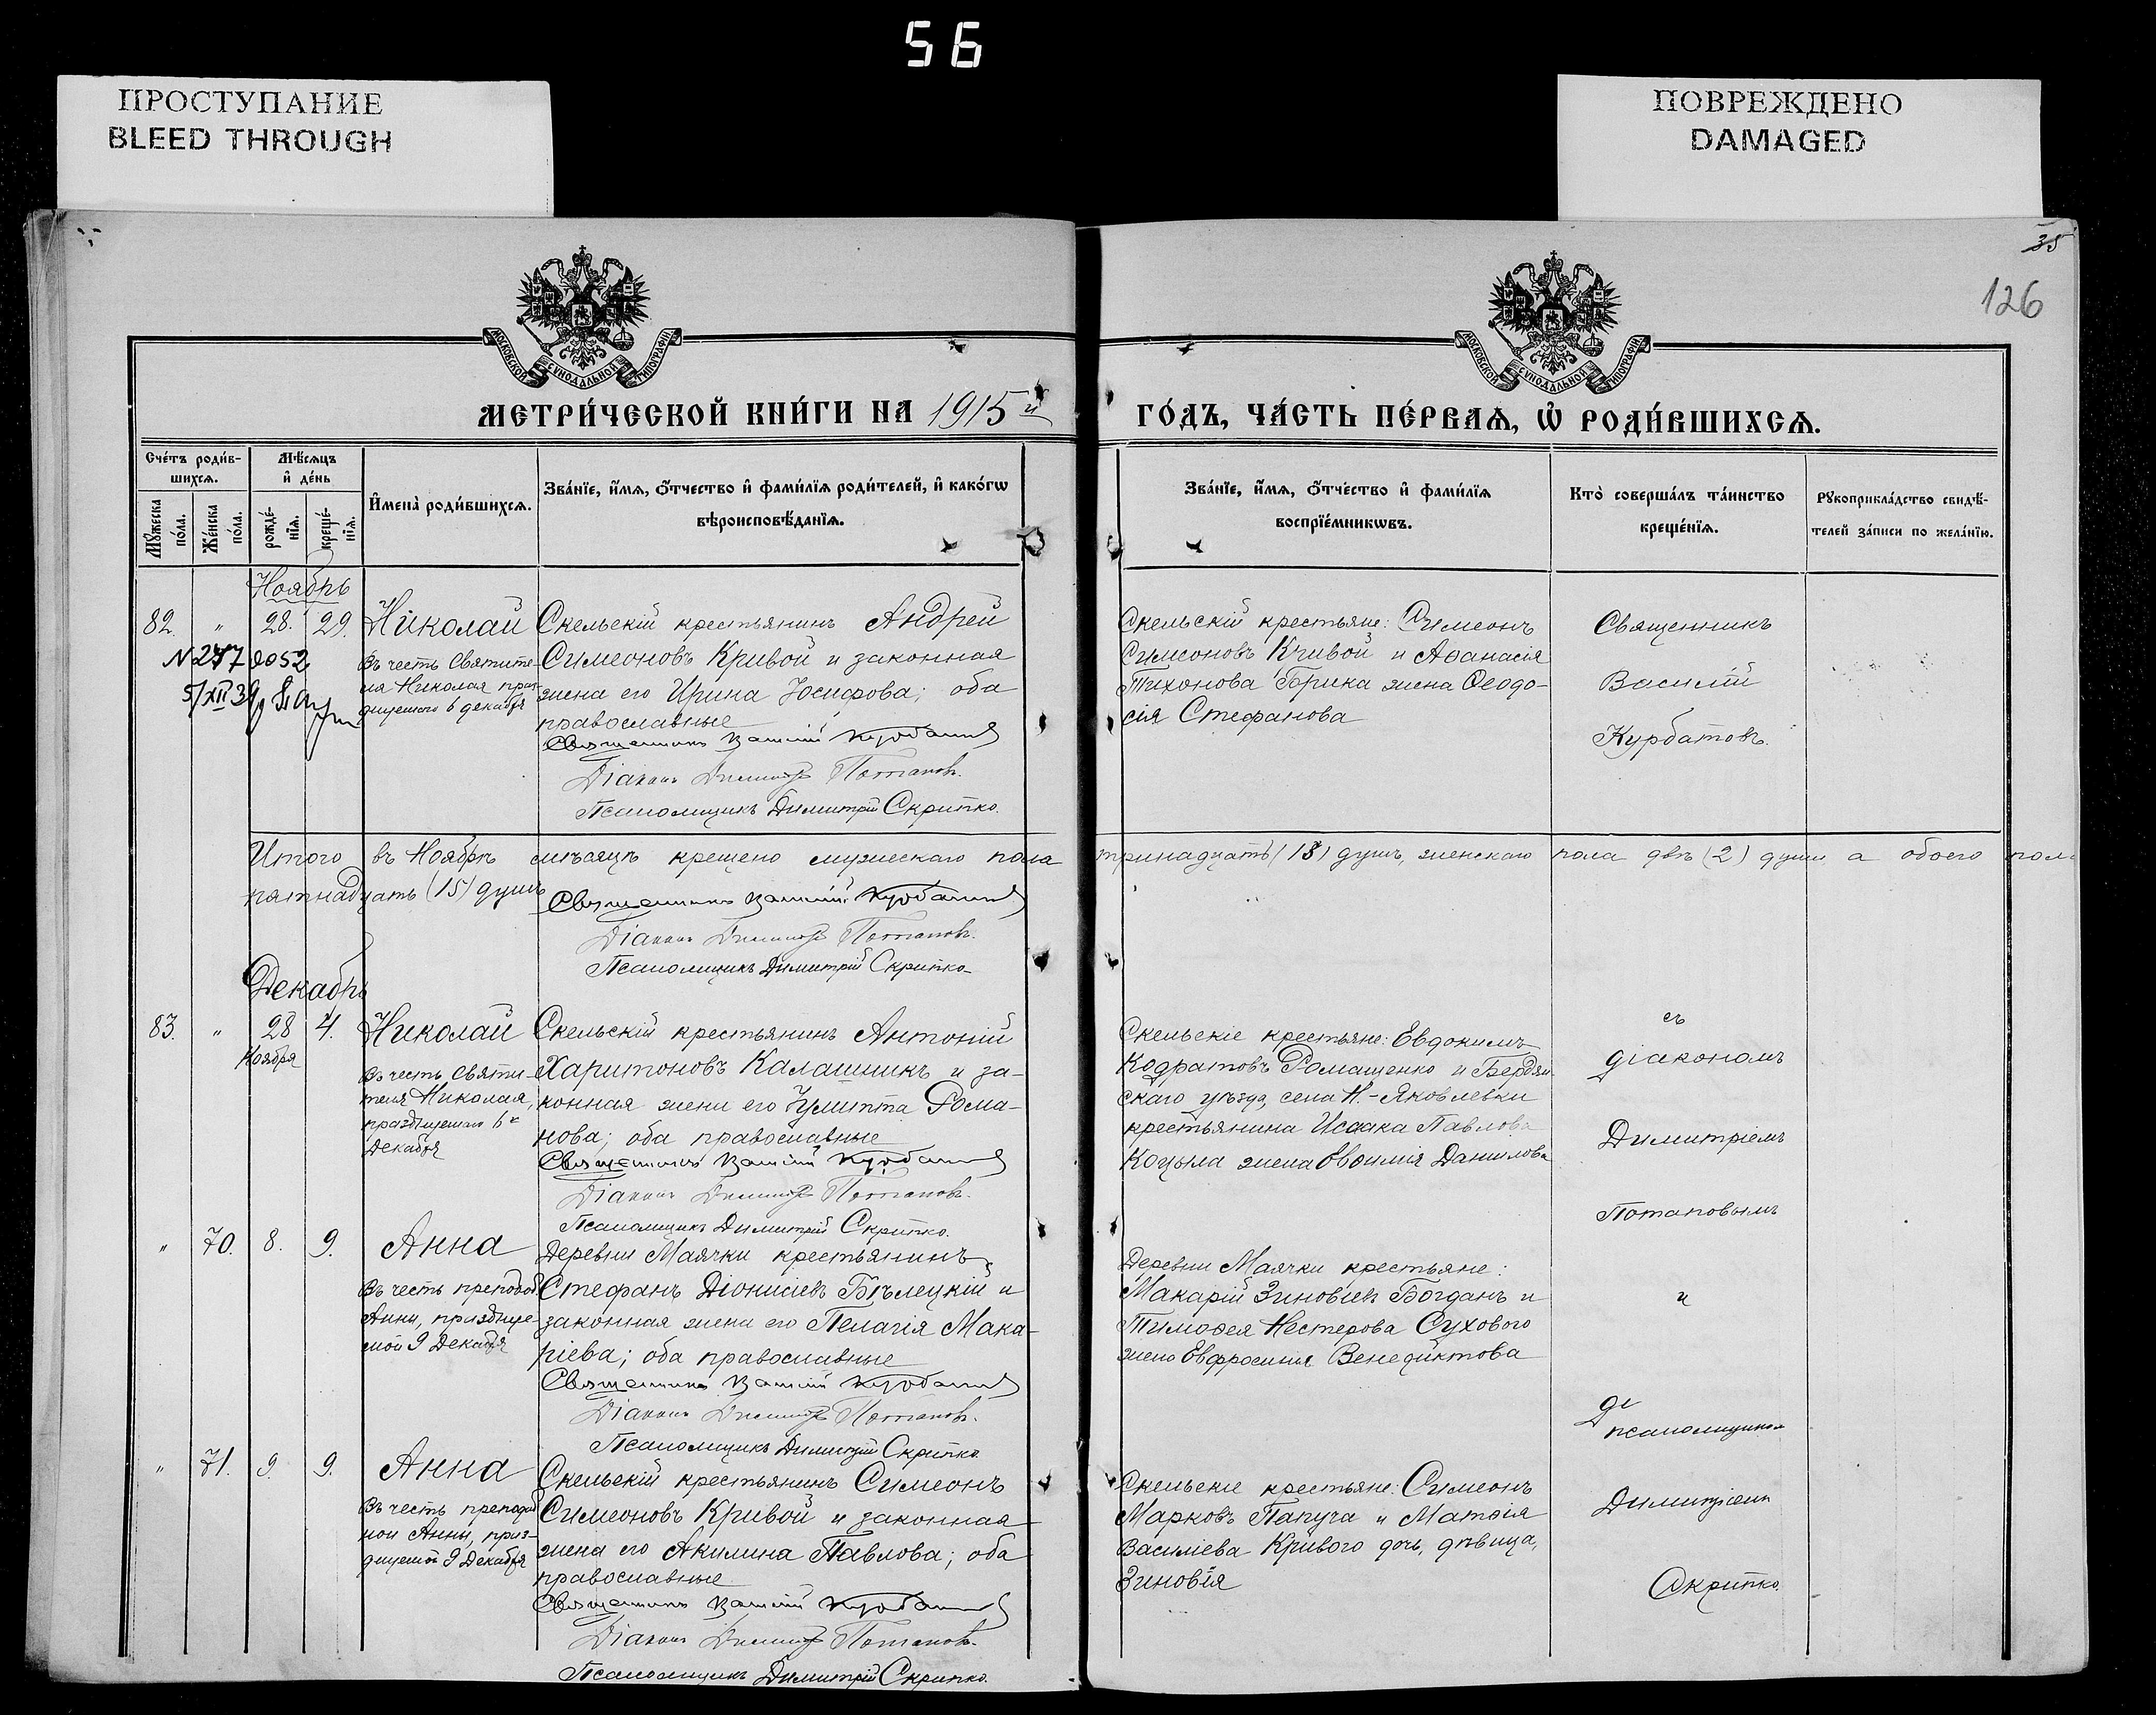 56
ПРОСТУПАНИЕ
BLEED THROUGH
ПОВРЕЖДЕНО
DAMAGED
35
126
МОСКОВСКОЙ СѴНОДАЛЬНОЙ ТИПОГРАФІИ
МОСКОВСКОЙ СѴНОДАЛЬНОЙ ТИПОГРАФІИ
МЕТРИ́ЧЕСКОЙ КНИ́ГИ НА 1915 й
ГО́ДЪ, ЧА́СТЬ ПЕ́РВАѦ, Ѡ҆ РОДИ́ВШИХСѦ.
Сче́тъ роди́в-
шихсѧ.
Мꙋ́жеска
по́ла.
Же́нска
по́ла.
Мѣ́сѧцъ
и҆ де́нь
рожде́-
нїѧ.
креще́-
нїѧ.
И҆мена̀ роди́вшихсѧ.
Зва́нїе, и҆́мѧ, ѻ҆́тчество и҆ фами́лїѧ роди́телей, и҆ како́гѡ
вѣроисповѣ́данїѧ.
Зва́нїе, и҆́мѧ, ѻ҆́тчество и҆ фами́лїѧ
воспрїе́мникѡвъ.
Кто̀ соверша́лъ та́инство
креще́нїѧ.
Рꙋкоприкла́дство свидѣ́-
телей за́писи по жела́нїю.
Ноябрь
82. " 28. 29. Николай
Въ честь Святите-
ля Николая праз-
днуемаго 6 декабря
Скельскій крестьянинъ Андрей
Симеоновъ Кривой и законная
жена его Ирина Іосифова; оба
православные
Священникъ Василій Курбатовъ
Діаконъ Димитрій Потаповъ.
Псаломщикъ Димитрій Скрипко.
Скельскій крестьяне: Симеонъ
Симеоновъ Кривой и Аѳанасія
Тихонова Брика жена Ѳеодо-
сія Стефанова
Священникъ
Василій
Курбатовъ.
Итого въ Ноябрѣ мѣсяцѣ крещено мужескаго пола тринадцать (13) душъ, женскаго пола двѣ (2) души, а обоего пола
пятнадцать (15) душъ
Священникъ Василій Курбатовъ
Діаконъ Димитрій Потаповъ.
Псаломщикъ Димитрій Скрипко
Декабрь
83. " 28 4. Николай
Ноября
Въ честь Святи-
теля Николая,
празднуемаго 6го
Декабря
Скельскій крестьянинъ Антоній
Харитоновъ Калашникъ и за-
конная жена его Іулитта Рома-
нова; оба православные
Священникъ Василій Курбатовъ
Діаконъ Димитрій Потаповъ.
Псаломщикъ Димитрій Скрипко.
Скельскіе крестьяне: Евдокимъ
Кодратовъ Ромащенко и Бердян-
скаго уѣзда, села Н.-Яковлевки
крестьянина Исаака Павлова
Коцыла жена Евѳимія Данилова
съ
діакономъ
Димитріемъ
Потаповымъ
" 70. 8. 9. Анна
Въ честь преподоб.
Анны, празднуе-
мой 9 Декабря
Деревни Маячки крестьянинъ
Стефанъ Діонисіевъ Бѣлецкій и
законная жена его Пелагія Мака-
ріева; оба православные
Священникъ Василій Курбатовъ
Діаконъ Димитрій Потаповъ.
Псаломщикъ Димитрій Скрипко
Деревни Маячки крестьяне:
Макарій Зиновіевъ Богданъ и
Тимоѳея Нестерова Сухового
жена Евфросинія Венедиктова
и
псаломщикомъ
" 71. 9. 9. Анна
Въ честь преподоб
ной Анны, праз-
днуемой 9 Декабря
Скельскій крестьянинъ Симеонъ
Симеоновъ Кривой и законная
жена его Акилина Павлова; оба
православные
Священникъ Василій Курбатовъ
Діаконъ Димитрій Потаповъ.
Псаломщикъ Димитрій Скрипко.
Скельскіе крестьяне: Симеонъ
Марковъ Папуча и Матѳія
Василіева Кривого дочь, дѣвица,
Зиновія
Димитріемъ
Скрипко